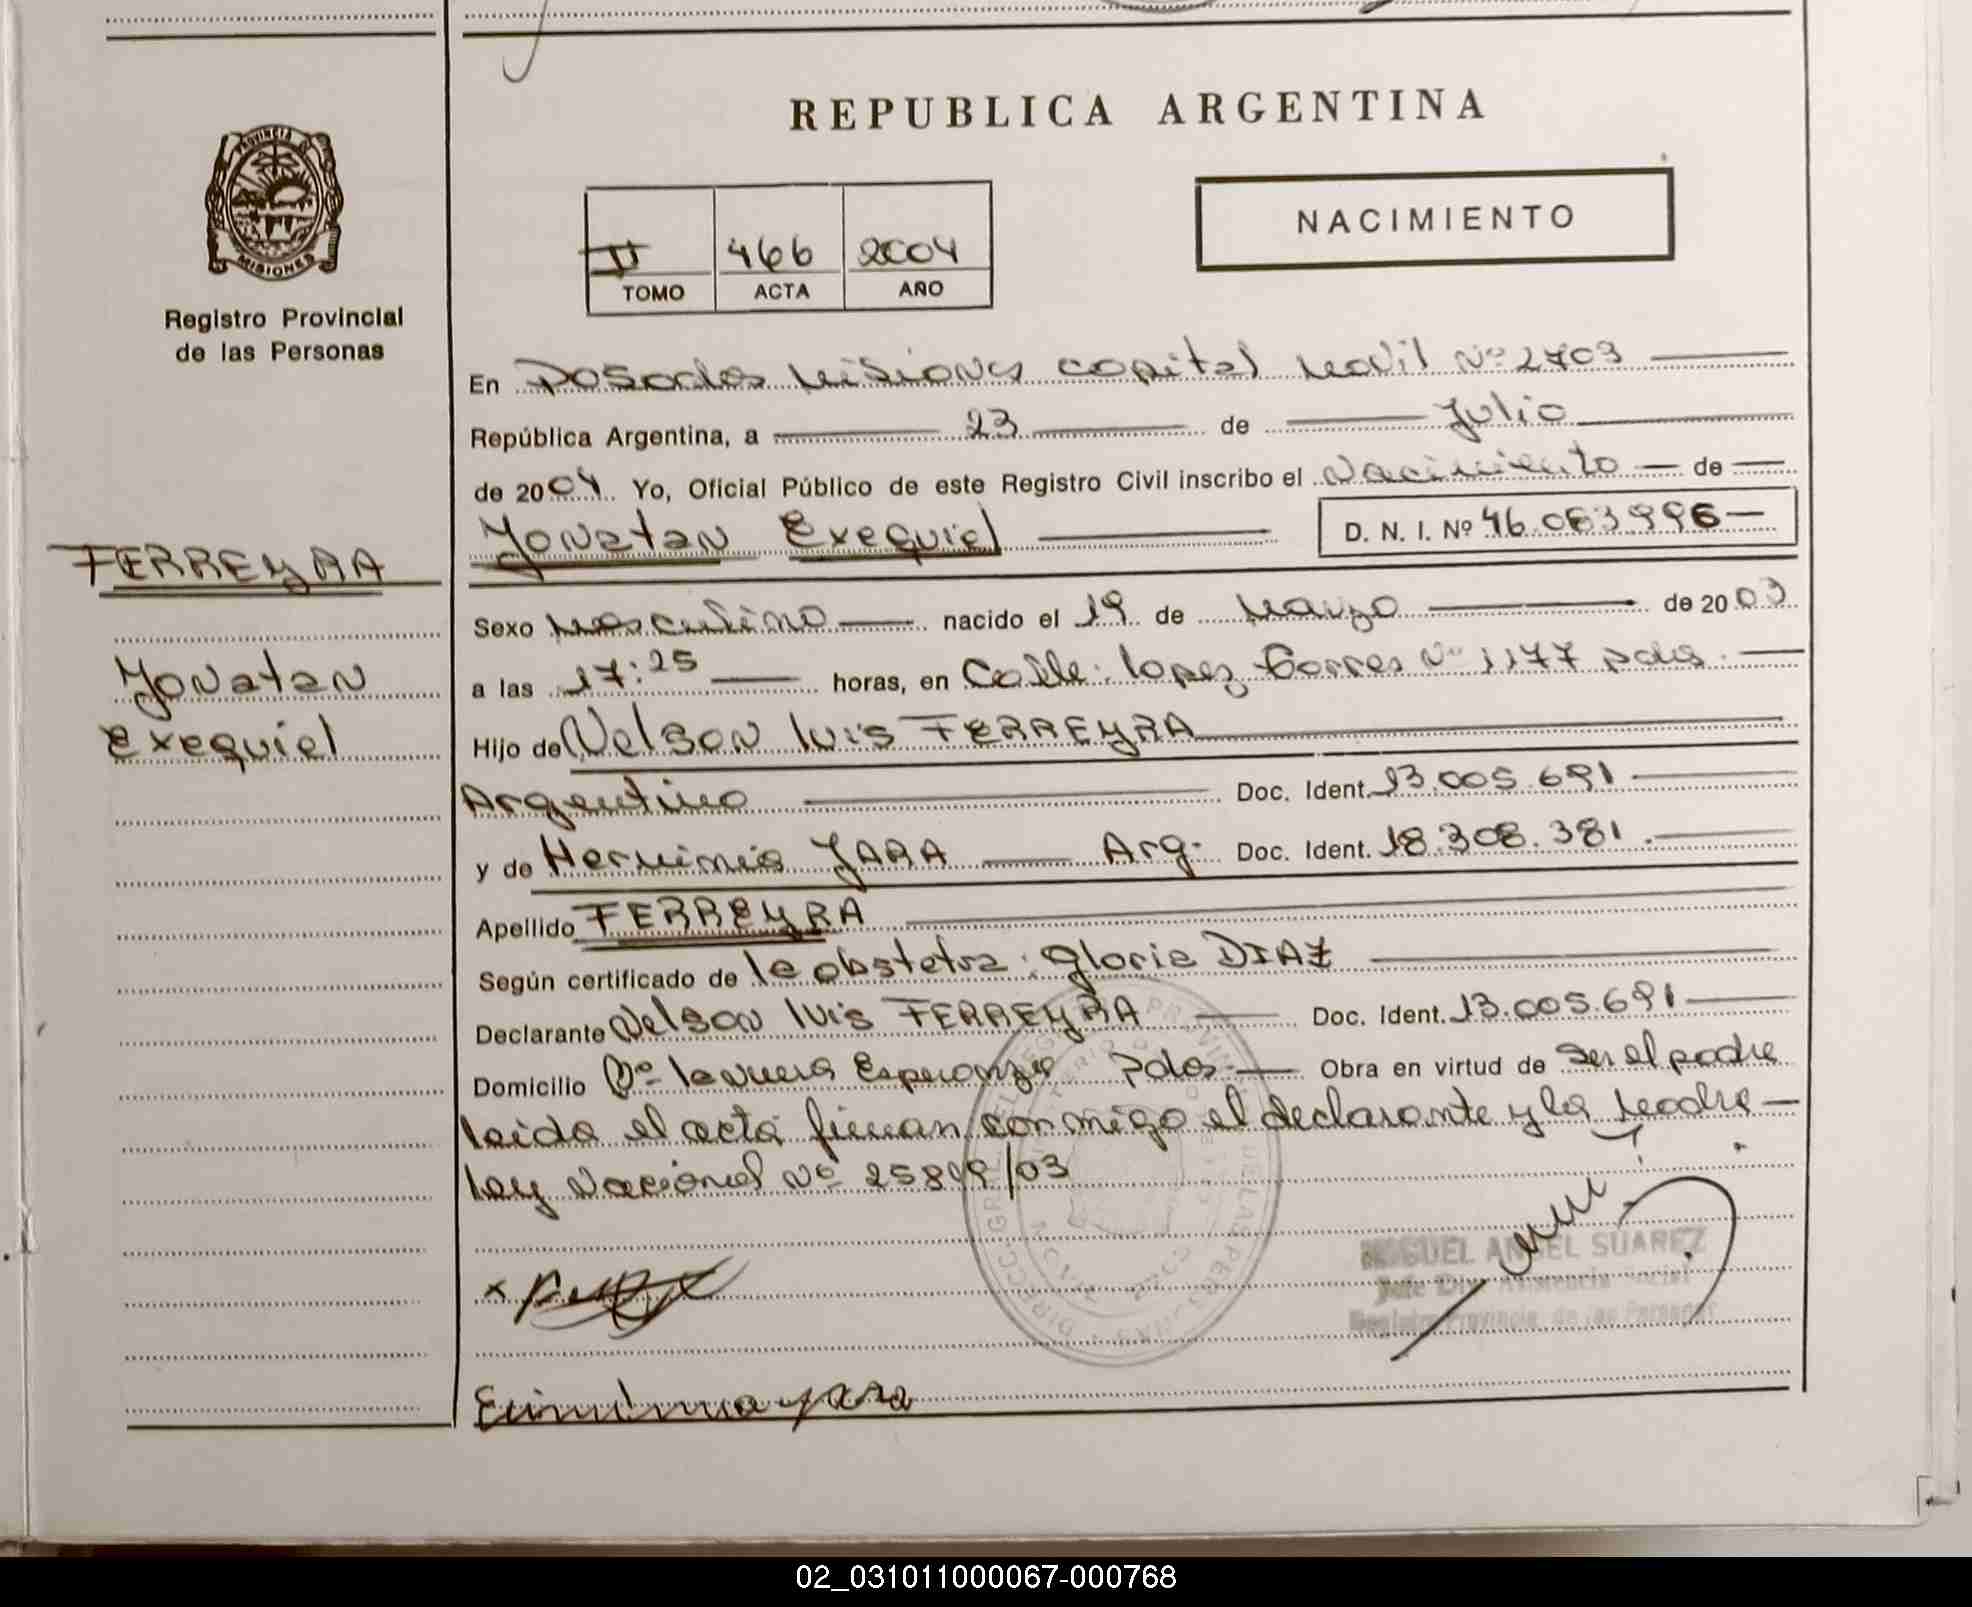 REPUBLICA ARGENTINA
PROVINCIA DE
MISIONES
Registro Provincial
de las Personas
NACIMIENTO
II 466 2004
TOMO ACTA AÑO
En Posadas Misiones capital Movil Nº 2703
República Argentina, a 23 de Julio
de 2004 Yo, Oficial Público de este Registro Civil inscribo el Nacimiento de
Yonatan Exequiel D. N. I. Nº 46.063.996
FERREYRA
Yonatan
Exequiel
Sexo Masculino nacido el 19 de Marzo de 2003
a las 17:25 horas, en Calle: Lopez Torres Nº 1177 pdas.
Hijo de Nelson Luis FERREYRA
Argentino Doc. Ident. 13.005.691
y de Herminia YARA Arg. Doc. Ident. 18.308.381.
Apellido FERREYRA
Según certificado de la obstetra: Gloria DIAZ
Declarante Nelson Luis FERREYRA Doc. Ident. 13.005.691
Domicilio Bº la nueva Esperanza Pdas. Obra en virtud de Ser el padre
leida el acta firman conmigo el declarante y la Madre
Ley Nacional Nº 25819/03
MIGUEL ANGEL SUAREZ
Jefe Div. Asistencia Social
Registro Provincial de las Personas
02_031011000067-000768